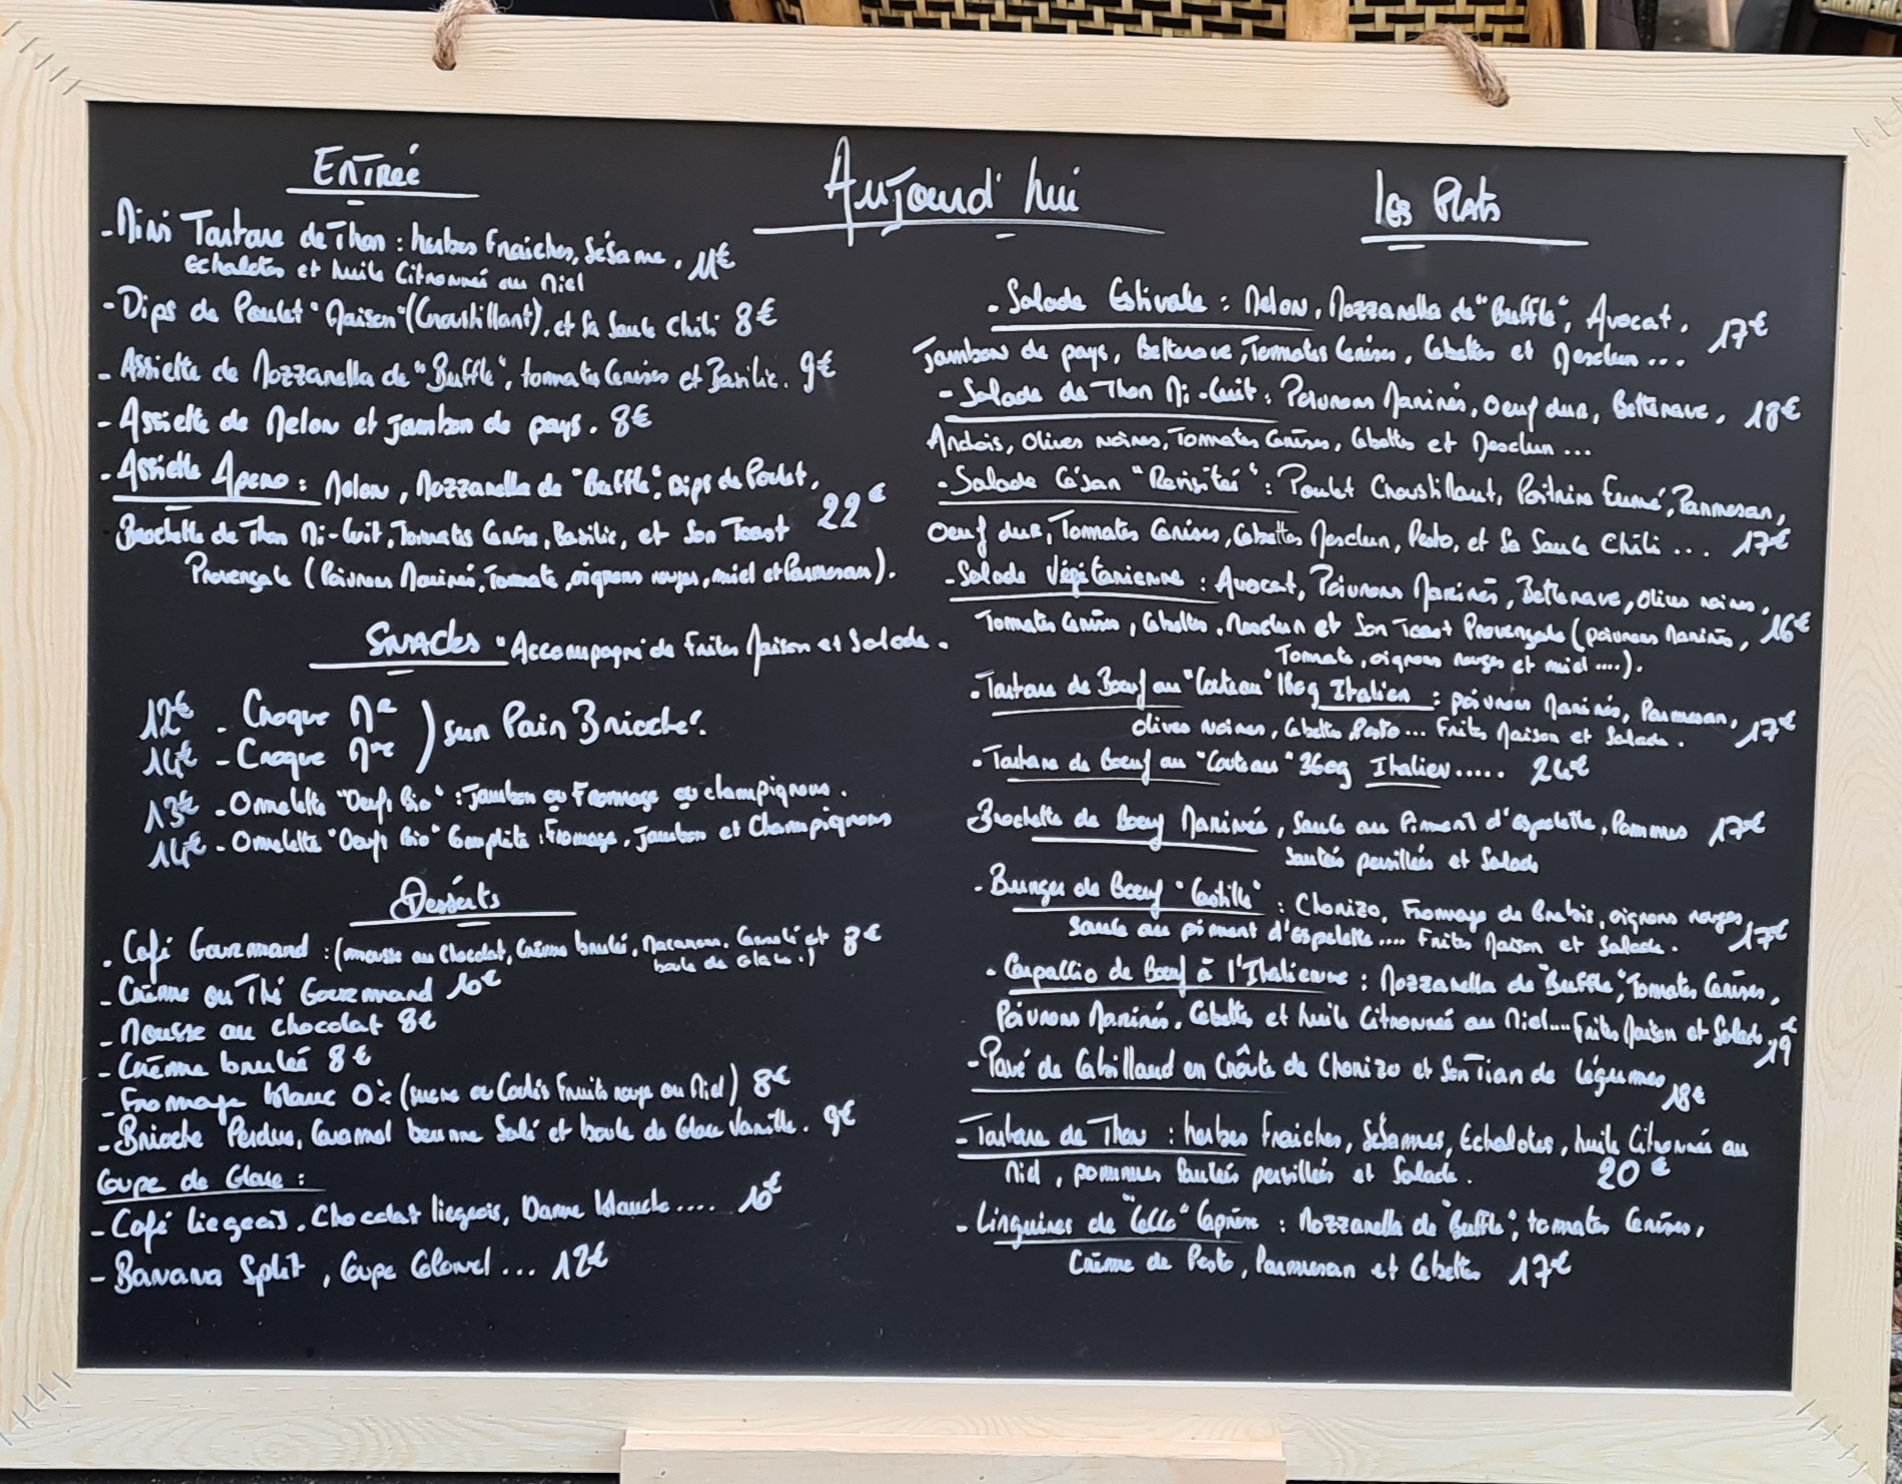 Aujourd'hui
Entrée
- Mini Tartare de Thon : herbes Fraiches, Sésame, 11€
Echalotes et huile Citronnée au Miel
- Dips de Poulet "Maison" (Croustillant), et sa Sauce Chili 8€
- Assiette de Mozzarella de "Buffle", tomates Cerises et Basilic. 9€
- Assiette de Melon et jambon de pays. 8€
- Assiette Apero : Melon, Mozzarella de "Buffle", Dips de Poulet,
Brochette de Thon Mi-Cuit, Tomates Cerise, Basilic, et Son Toast 22€
Provençale (Poivrons Marinés, Tomate, oignons rouges, miel et Parmesan).
Snacks "Accompagné de Frites Maison et Salade.
12€ - Croque Mr
14€ - Croque Mme ) sur Pain Brioché.
13€ - Ommelette "Oeufs Bio" : jambon ou Fromage ou champignons.
14€ - Ommelette "Oeufs Bio" Complète : Fromage, jambon et Champignons
Desserts
- Café Gourmand : (mousse au chocolat, Crème brulée, Macarons, Cannelé et 8€
boule de Glace.)
- Crème ou Thé Gourmand 10€
- Mousse au chocolat 8€
- Crème brulée 8€
- Fromage blanc 0% (sucre ou Coulis Fruits rouge ou Miel) 8€
- Brioche Perdue, Caramel beurre Salé et boule de Glace Vanille. 9€
Coupe de Glace :
- Café liegeois, Chocolat liegeois, Dame blanche.... 10€
- Banana Split, Coupe Colonel... 12€
Les Plats
- Salade Estivale : Melon, Mozzarella de "Buffle", Avocat, 17€
Jambon de pays, Betterave, Tommates Cerises, Cebettes et Mesclun...
- Salade de Thon Mi-Cuit : Poivrons Marinés, Oeuf dur, Betterave, 18€
Anchois, Olives noires, Tommates Cerises, Cebettes et Mesclun...
- Salade César "Revisitée" : Poulet Croustillant, Poitrine Fumé, Parmesan,
Oeuf dur, Tommates Cerises, Cebettes Mesclun, Pesto, et Sa Sauce Chili... 17€
- Salade Végétarienne : Avocat, Poivrons Marinés, Betterave, Olives noires,
Tomates Cerises, Cebettes, Mesclun et Son Toast Provençale (poivrons Marinés, 16€
Tomate, oignons rouges et miel....).
- Tartare de Boeuf au "Couteau" 180g Italien : poivrons Marinés, Parmesan,
Olives noires, Cebettes, Pesto... Frites Maison et Salade. 17€
- Tartare de Boeuf au "Couteau" 360g Italien..... 24€
Brochette de Boeuf Marinée, Sauce au Piment d'espelette, Pommes 17€
Sautées persillées et Salade
- Burger de Boeuf "Castille" : Chorizo, Fromage de Brebis, oignons rouges,
Sauce au piment d'espelette.... Frites Maison et Salade. 17€
- Carpaccio de Boeuf à l'Italienne : Mozzarella de "Buffle", Tomates Cerises,
Poivrons Marinés, Cebettes et huile Citronnée au Miel.... Frites Maison et Salade, 19€
- Pavé de Cabillaud en Croûte de Chorizo et Son Tian de légumes 18€
- Tartare de Thon : herbes Fraiches, Sésames, Echalotes, huile Citronnée au
Miel, pommes Sautées persillées et Salade. 20€
- Linguines de "Cello" Caprese : Mozzarella de "Buffle", tomates Cerises,
Crème de Pesto, Parmesan et Cebettes 17€